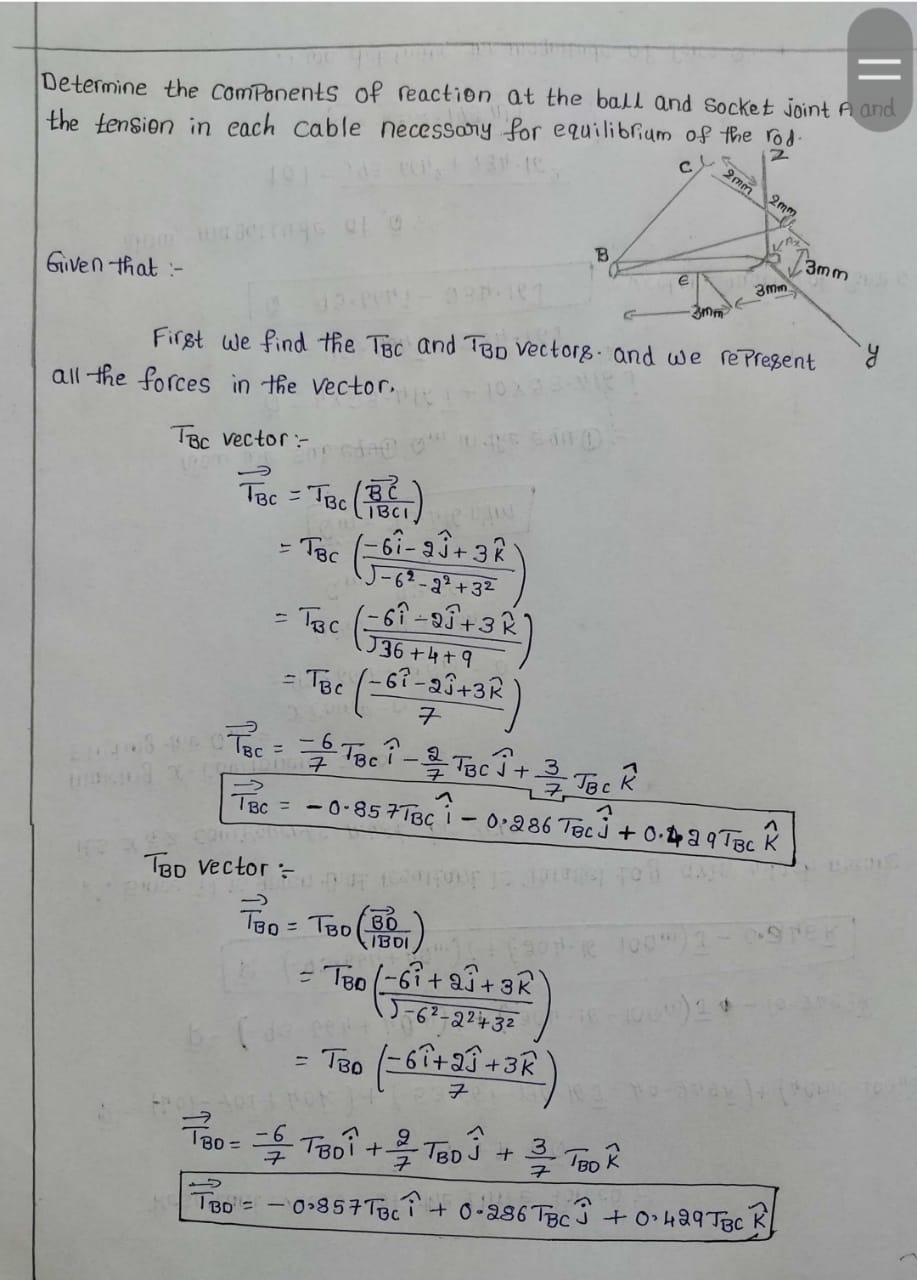 Determine the components of reaction at the ball and socket joint A and
the tension in each cable necessary for equilibrium of the rod.
C
2mm
Z
2mm
B
Az
3mm
E
3mm
3mm
y
Given that :-
First we find the TBC and TBD vectors. and we represent
all the forces in the vector.
TBC vector :-
TBC = TBC (BC / |BC|)
= TBC (-6î - 2ĵ + 3k̂ / √-6² - 2² + 3²)
= TBC (-6î - 2ĵ + 3k̂ / √36 + 4 + 9)
= TBC (-6î - 2ĵ + 3k̂ / 7)
TBC = -6/7 TBC î - 2/7 TBC ĵ + 3/7 TBC k̂
TBC = - 0.857 TBC î - 0.286 TBC ĵ + 0.429 TBC k̂
TBD vector :-
TBD = TBD (BD / |BD|)
= TBD (-6î + 2ĵ + 3k̂ / √-6² - 2² + 3²)
= TBD (-6î + 2ĵ + 3k̂ / 7)
TBD = -6/7 TBD î + 2/7 TBD ĵ + 3/7 TBD k̂
TBD = - 0.857 TBC î + 0.286 TBC ĵ + 0.429 TBC k̂